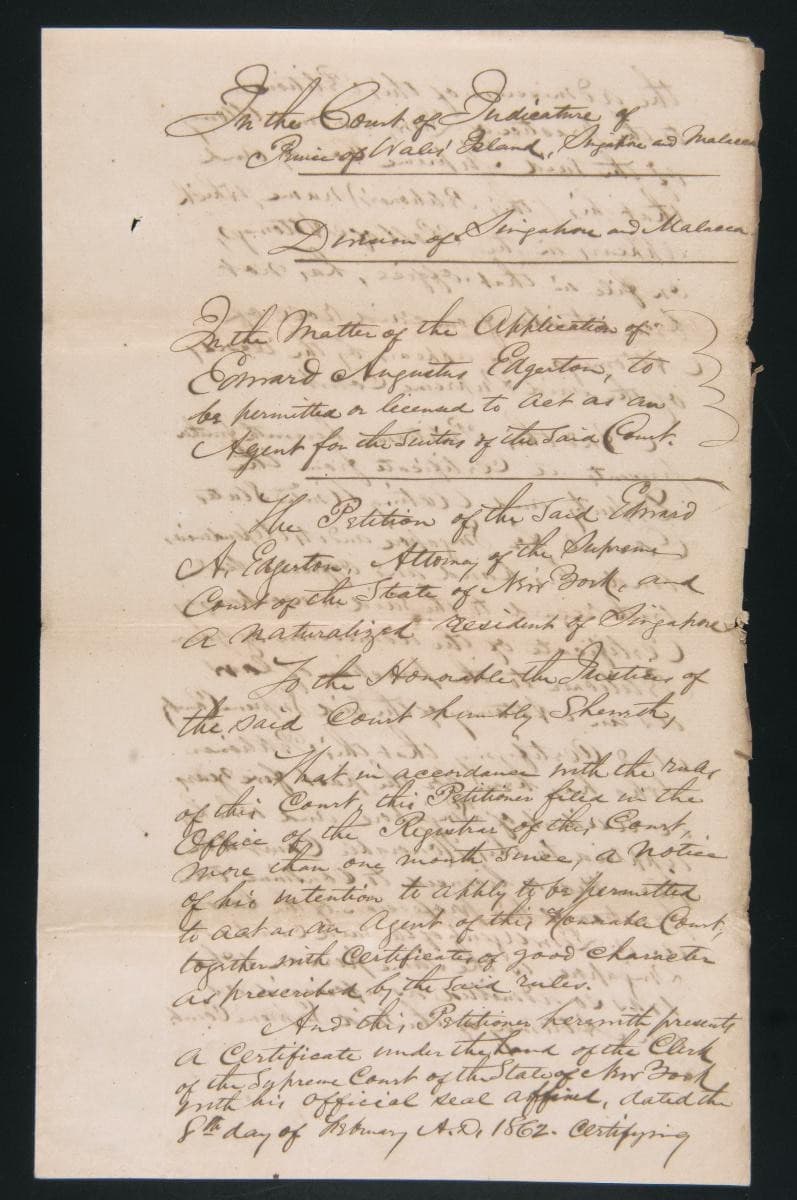 In the Court of Judicature of
Prince of Wales' Island, Singapore and Malacca
Division of Singapore and Malacca
In the Matter of the Application of
Edward Augustus Edgerton, to
be permitted or licensed to act as an
Agent for the suitors of the said Court.
The Petition of the said Edward
A. Edgerton, Attorney of the Supreme
Court of the State of New York, and
a naturalized resident of Singapore
To the Honorable the Justices of
the said Court humbly Sheweth,
That in accordance with the rules
of this Court, this Petitioner filed in the
Office of the Registrar of this Court,
more than one month since, a notice
of his intention to apply to be permitted
to act as an Agent of this Honorable Court,
together with Certificates of good character
as prescribed by the said rules.
And this Petitioner herewith presents
a Certificate under the hand of the Clerk
of the Supreme Court of the State of New York
with his official seal affixed, dated the
8th day of February A.D. 1862. certifying